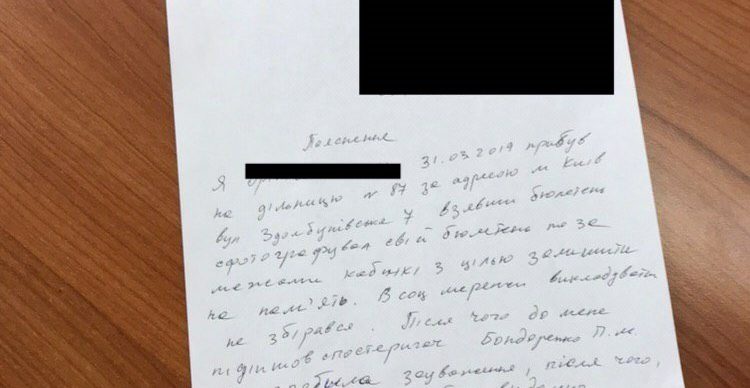 Пояснення
Я 31.03.2019 прибув
на дільницю № 87 за адресою м Київ
вул Здолбунівська 7 взявши бюлетень
сфотографував свій бюлетень поза
межами кабінкі з цільо залишити
на пам'ять. В соц мережи викладувати
не збірався. Після чого до мене
підійшов спостерігач Бондаренко П.М.
зауваження, після чого,